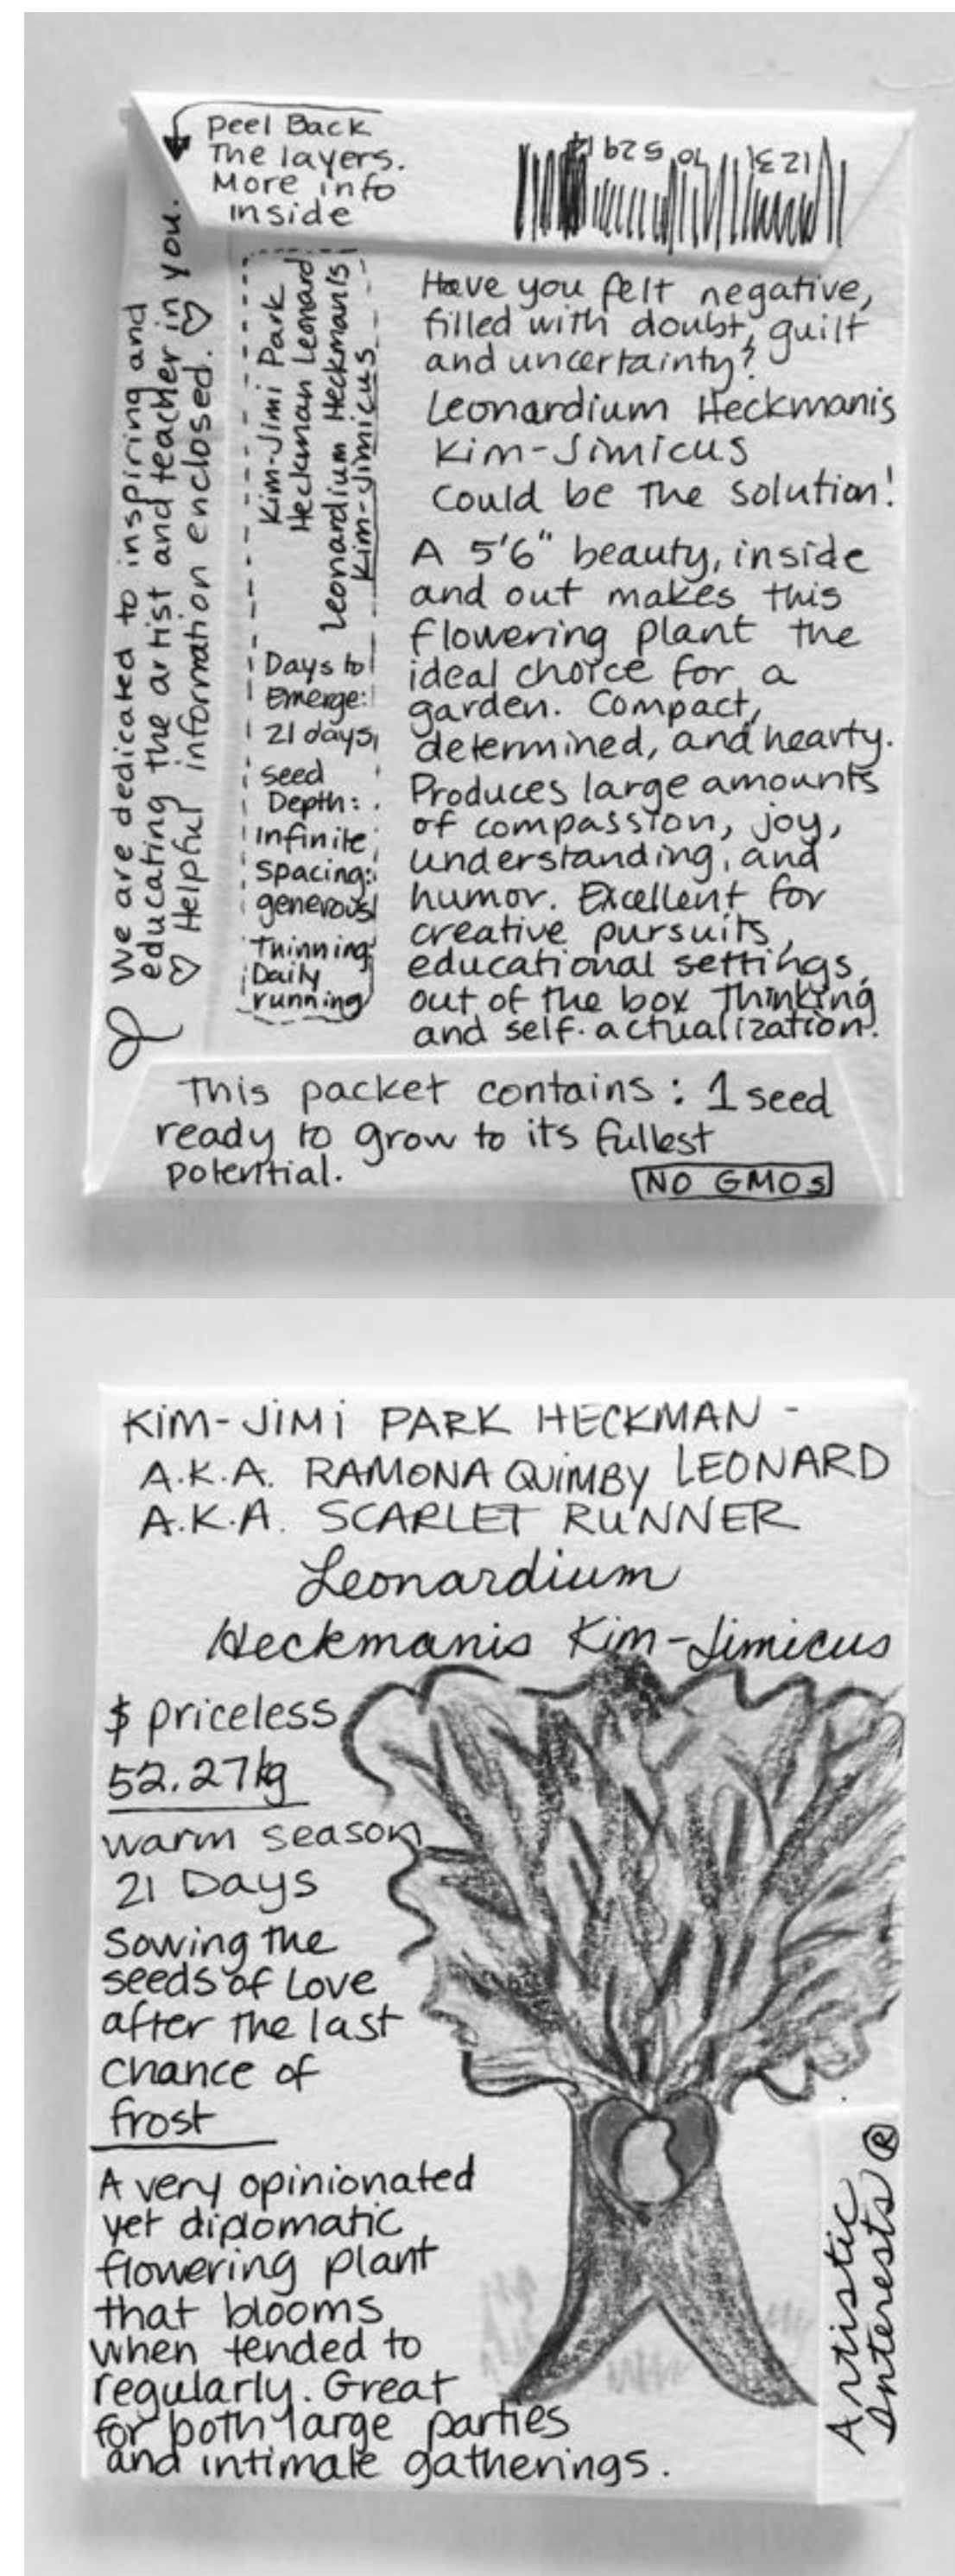 Peel Back
The layers.
More info
inside
We are dedicated to inspiring and
educating the artist and teacher in you.
♡ Helpful information enclosed. ♡
Kim-Jimi Park
Heckman Leonard
Leonardium Heckmanis
Kim-Jimicus
Days to
Emerge:
21 days
seed
Depth:
Infinite
Spacing:
generous
Thinning:
Daily
running
Have you felt negative,
filled with doubt, guilt
and uncertainty?
Leonardium Heckmanis
Kim-Jimicus
Could be the solution!
A 5'6" beauty, inside
and out makes this
flowering plant the
ideal choice for a
garden. Compact,
determined, and hearty.
Produces large amounts
of compassion, joy,
understanding, and
humor. Excellent for
creative pursuits,
educational settings,
out of the box thinking
and self-actualization.
This packet contains: 1 seed
ready to grow to its fullest
potential.
NO GMOs
KIM-JIMI PARK HECKMAN -
A.K.A. RAMONA QUIMBY LEONARD
A.K.A. SCARLET RUNNER
Leonardium
Heckmanis Kim-Jimicus
$ priceless
52.27kg
warm season
21 Days
Sowing the
seeds of Love
after the last
chance of
frost
A very opinionated
yet diplomatic
flowering plant
that blooms
when tended to
regularly. Great
for both large parties
and intimate gatherings.
Artistic
Interests ®